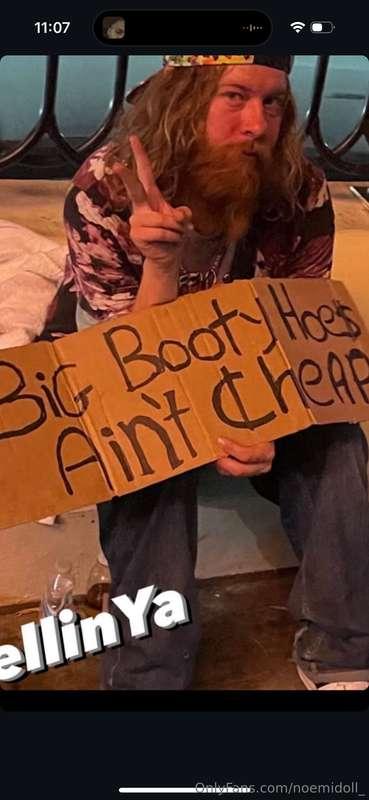 11:07
BiG Booty Hoe$
Ain't ChEAP
ellinYa
OnlyFans.com/noemidoll_